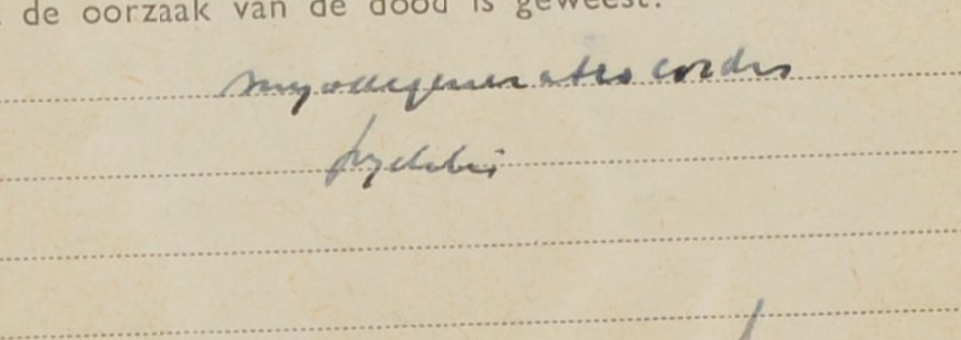 de oorzaak van de dood is geweest.
myodegeneratio cordis
pyelitis